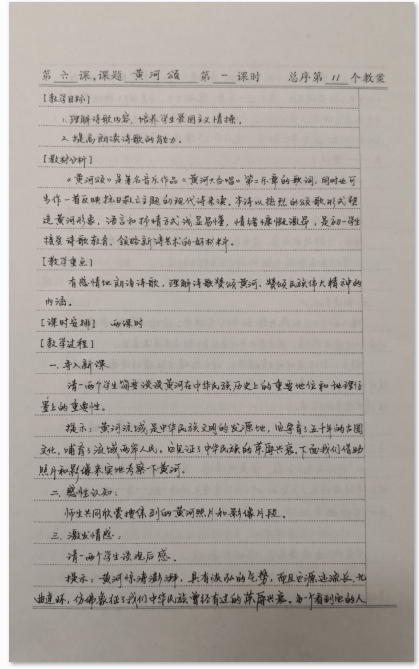 第 六 课，课题 黄河颂 第 一 课时 总序第 11 个教案
[教学目标]
1. 理解诗歌内容，培养学生爱国主义情操。
2. 提高朗读诗歌的能力。
[教材分析]
《黄河颂》是著名音乐作品《黄河大合唱》第二乐章的歌词，同时也可
当作一首反映抗日救亡主题的现代诗来读。本诗以热烈的颂歌形式塑
造黄河形象，语言和抒情方式浅显易懂，情绪慷慨激昂，是初一学生
接受诗歌教育、领略新诗艺术的好材料。
[教学重点]
有感情地朗诵诗歌，理解诗歌赞颂黄河、赞颂民族伟大精神的
内涵。
[课时安排] 两课时
[教学过程]
一. 导入新课
请一两个学生简要谈谈黄河在中华民族历史上的重要地位和地理位
置上的重要性。
提示：黄河流域是中华民族文明的发源地，她孕育了五千年的古国
文化，哺育了流域两岸人民。她见证了中华民族的荣辱兴衰。下面我们借助
照片和影像来实地考察一下黄河。
二. 感性认知：
师生共同欣赏搜集到的黄河照片和影像片段。
三. 激发情感：
请一两个学生谈观后感。
提示：黄河惊涛澎湃，具有浓郁的气势，而且它源远流长，九
曲连环，仿佛象征了我们中华民族曾经有过的荣辱兴衰。每一个看到它的人